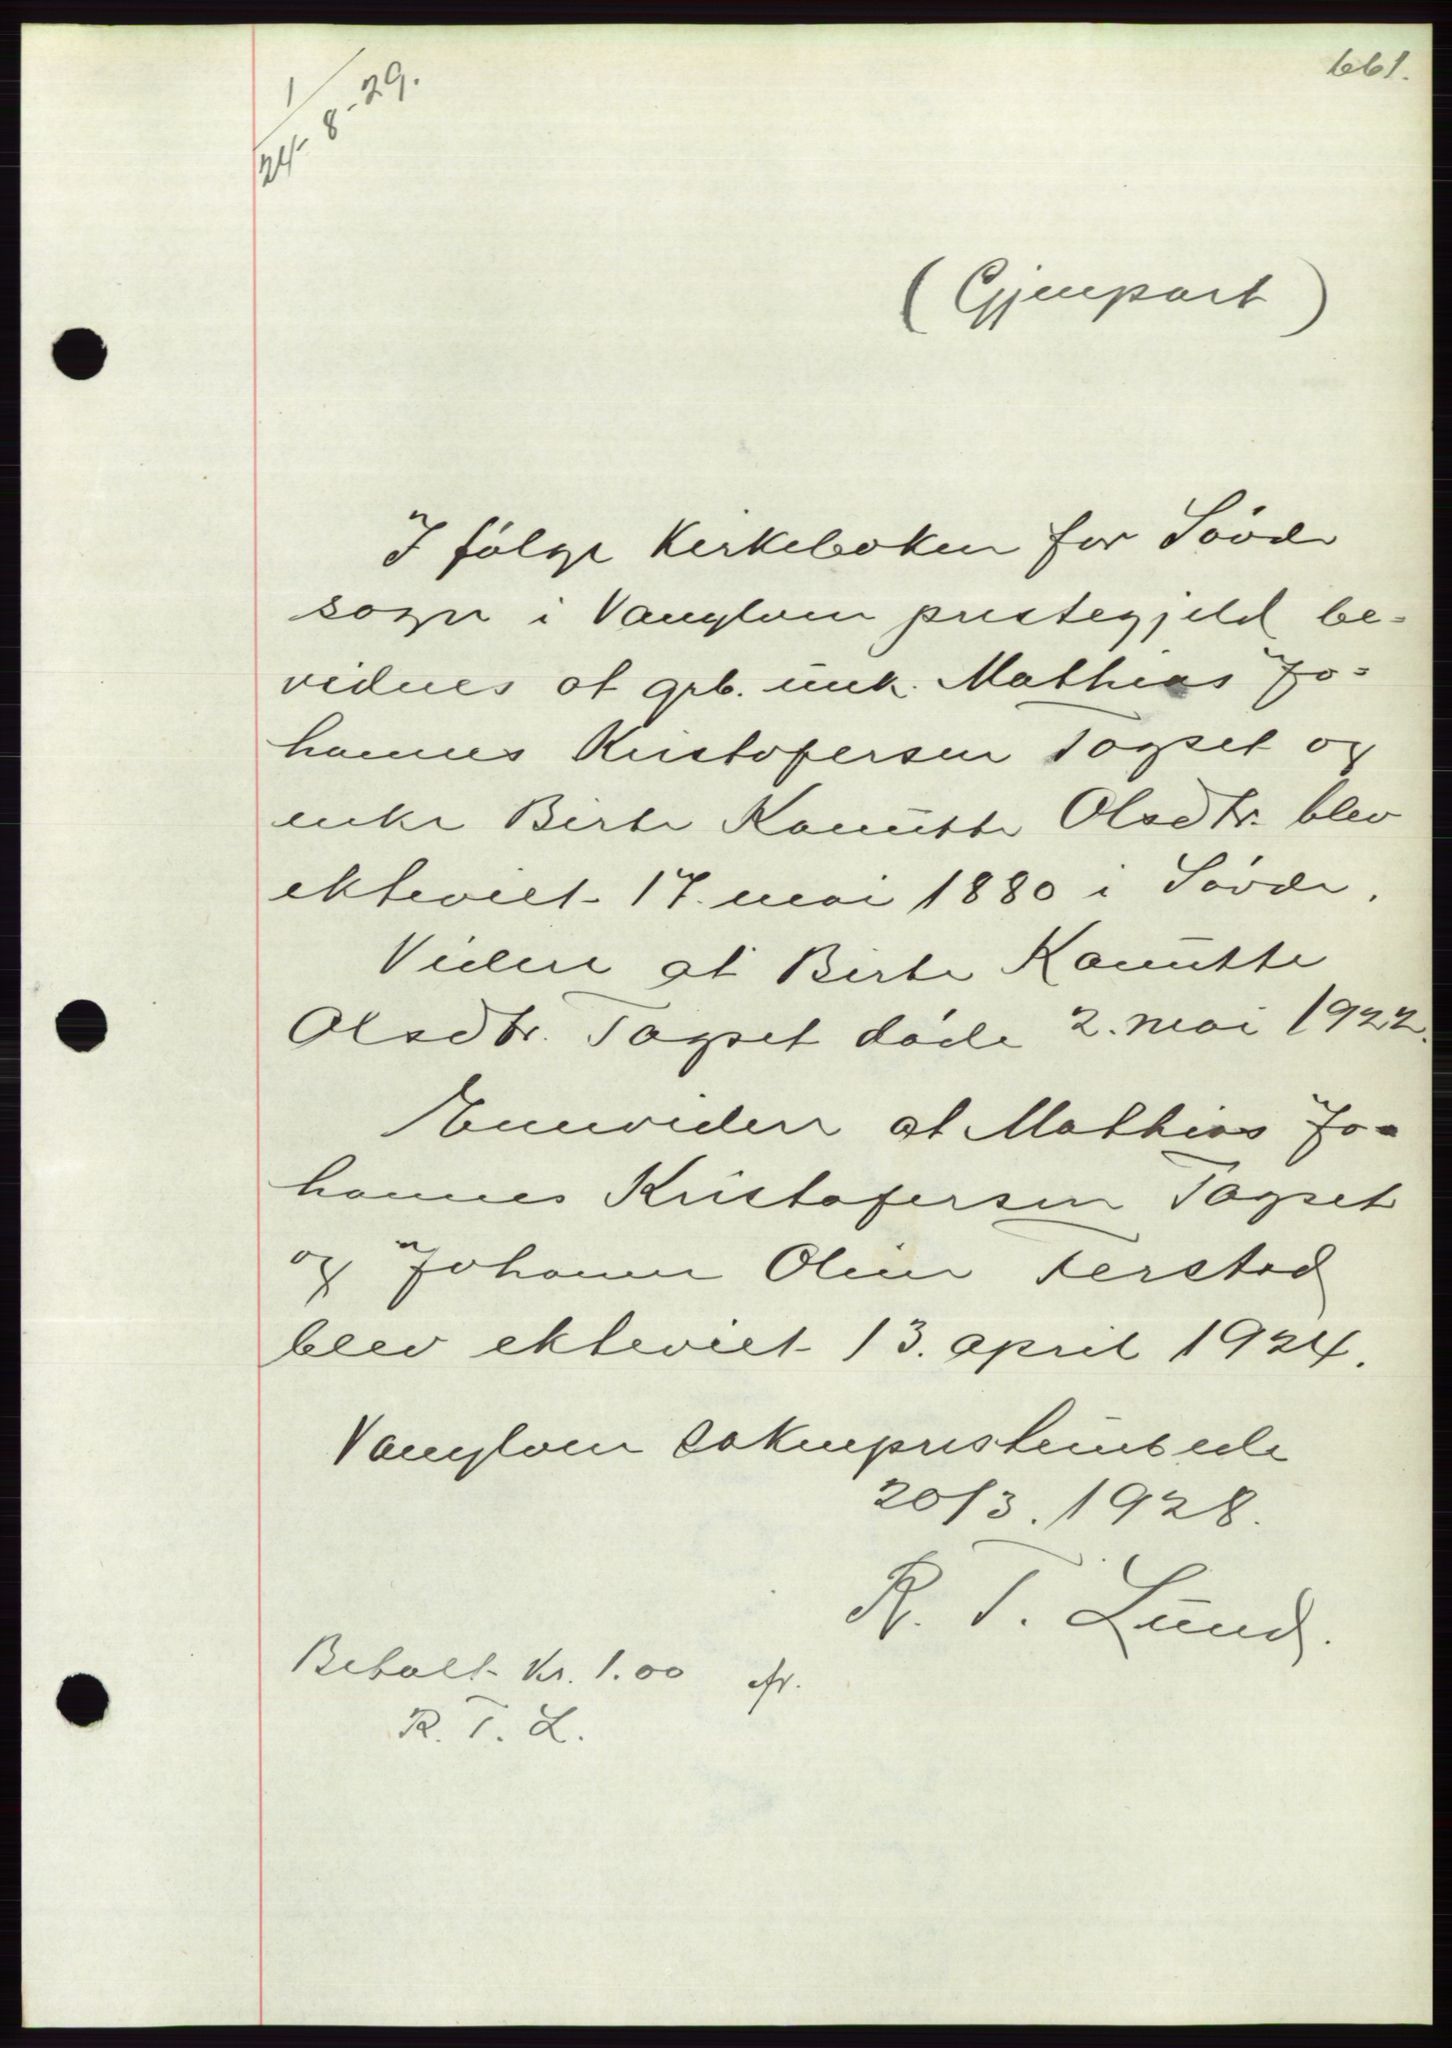 661.
1/24-8-29.
(Gjenpart)
I følge Kirkeboken for Søvde
sogn i Vanylven prestegjeld be-
vidnes at grb. unk. Mathias Jo-
hannes Kristofersen Tagset og
enke Birte Kanutte Olsdtr. blev
ekteviet 17. mai 1880 i Søvde.
Videre at Birte Kanutte
Olsdtr. Tagset døde 2. mai 1922.
Ennvidere at Mathias Jo-
hannes Kristofersen Tagset
og Johanne Oline Ferstad
blev ekteviet 13. april 1924.
Vanylven sokneprestembede
20/3. 1928.
R. T. Lund.
Betalt kr. 1.00
R. T. L.